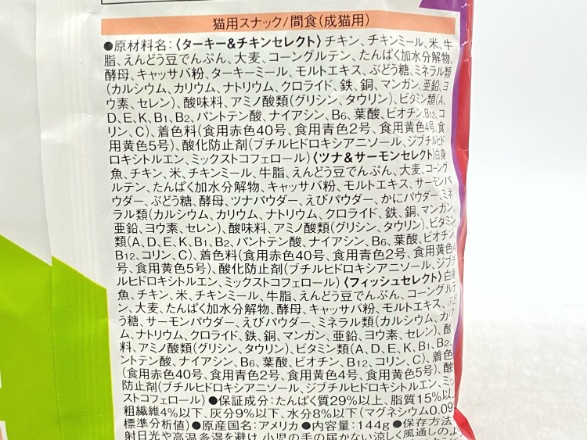 猫用スナック/間食(成猫用)
●原材料名:〈ターキー&チキンセレクト〉チキン、チキンミール、米、牛
脂、えんどう豆でんぷん、大麦、コーングルテン、たんぱく加水分解物、
酵母、キャッサバ粉、ターキーミール、モルトエキス、ぶどう糖、ミネラル類
(カルシウム、カリウム、ナトリウム、クロライド、鉄、銅、マンガン、亜鉛、ヨ
ウ素、セレン)、酸味料、アミノ酸類(グリシン、タウリン)、ビタミン類(A、
D、E、K、B1、B2、パントテン酸、ナイアシン、B6、葉酸、ビオチン、B12、コ
リン、C)、着色料(食用赤色40号、食用青色2号、食用黄色4号、食
用黄色5号)、酸化防止剤(ブチルヒドロキシアニソール、ジブチルヒド
ロキシトルエン、ミックストコフェロール)〈ツナ&サーモンセレクト〉白身
魚、チキン、米、チキンミール、牛脂、えんどう豆でんぷん、大麦、コーング
ルテン、たんぱく加水分解物、キャッサバ粉、モルトエキス、サーモンパ
ウダー、ぶどう糖、酵母、ツナパウダー、えびパウダー、かにパウダー、ミネ
ラル類(カルシウム、カリウム、ナトリウム、クロライド、鉄、銅、マンガン、
亜鉛、ヨウ素、セレン)、酸味料、アミノ酸類(グリシン、タウリン)、ビタミン
類(A、D、E、K、B1、B2、パントテン酸、ナイアシン、B6、葉酸、ビオチン、
B12、コリン、C)、着色料(食用赤色40号、食用青色2号、食用黄色4
号、食用黄色5号)、酸化防止剤(ブチルヒドロキシアニソール、ジブチ
ルヒドロキシトルエン、ミックストコフェロール)〈フィッシュセレクト〉白身
魚、チキン、米、チキンミール、牛脂、えんどう豆でんぷん、コーングルテ
ン、大麦、たんぱく加水分解物、酵母、キャッサバ粉、モルトエキス、ぶ
どう糖、サーモンパウダー、えびパウダー、ミネラル類(カルシウム、カリウ
ム、ナトリウム、クロライド、鉄、銅、マンガン、亜鉛、ヨウ素、セレン)、酸味
料、アミノ酸類(グリシン、タウリン)、ビタミン類(A、D、E、K、B1、B2、パ
ントテン酸、ナイアシン、B6、葉酸、ビオチン、B12、コリン、C)、着色料
(食用赤色40号、食用青色2号、食用黄色4号、食用黄色5号)、酸化
防止剤(ブチルヒドロキシアニソール、ジブチルヒドロキシトルエン、ミック
ストコフェロール) ●保証成分:たんぱく質29%以上、脂質15%以上、
粗繊維4%以下、灰分9%以下、水分8%以下(マグネシウム0.09
標準分析値) ●原産国名:アメリカ ●内容量:144g ●保存方法
射日光や高温多湿を避け、小児の手の届かない涼しく風通しのよ